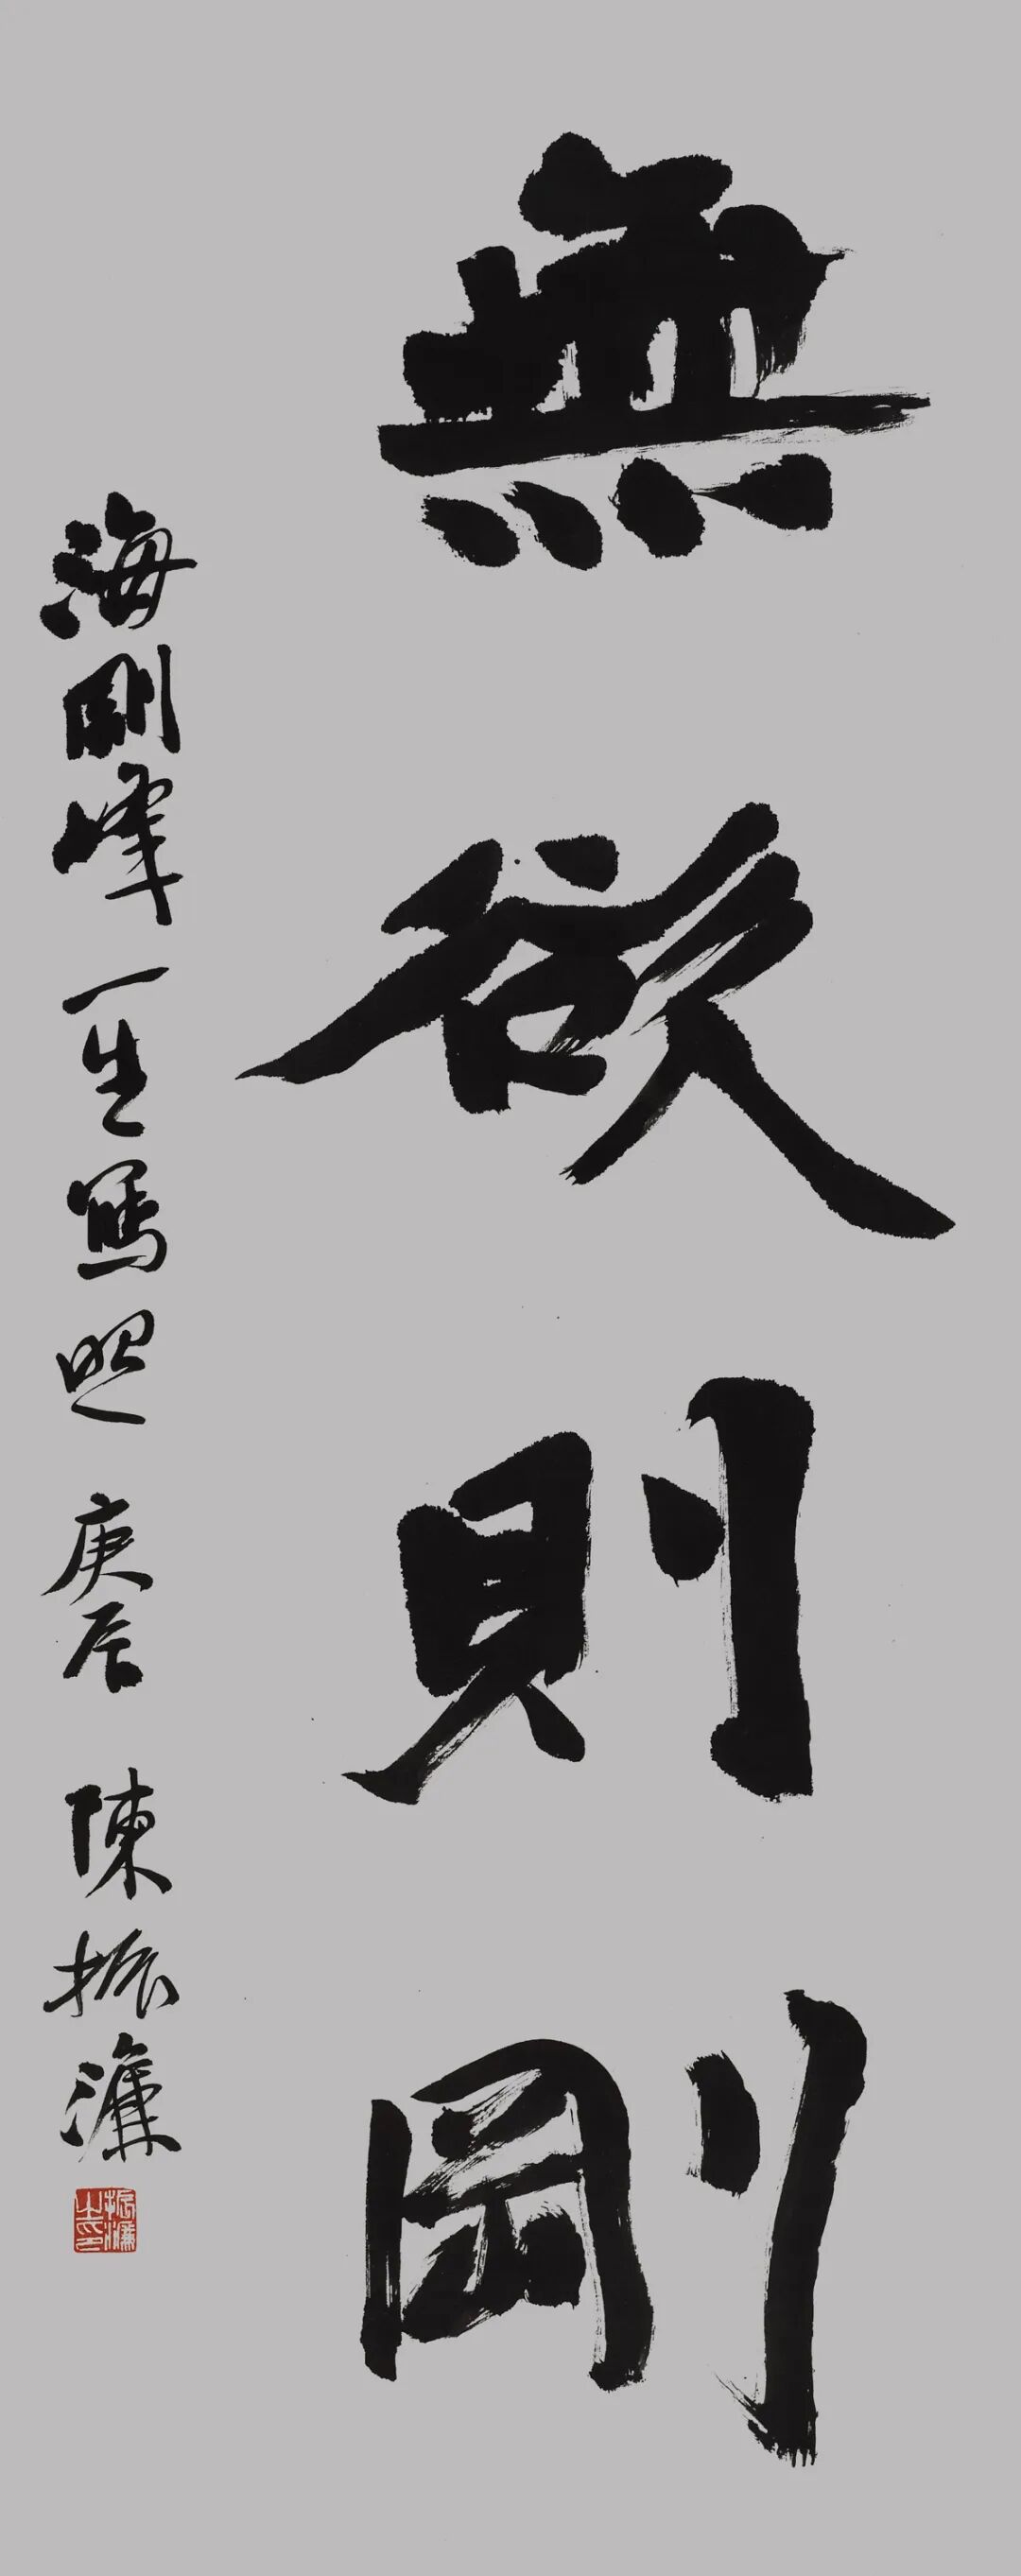 無欲則剛
海剛峰一生寫照 庚辰 陳振濂
振濂之印